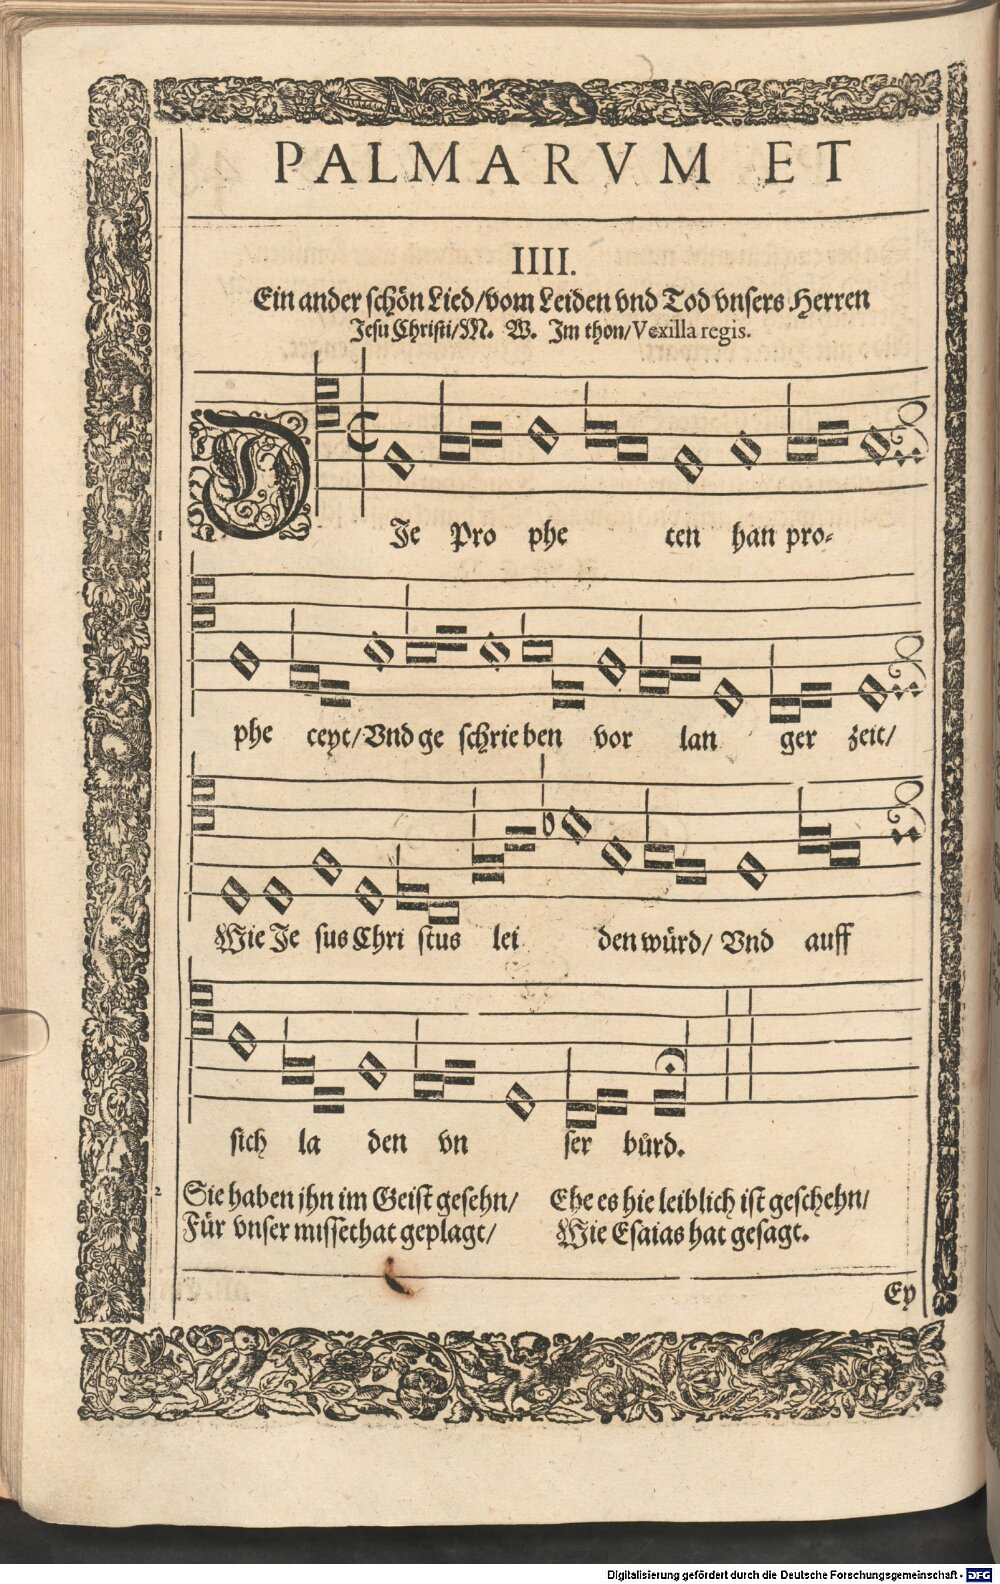 PALMARVM ET
IIII.
Ein ander schön Lied/vom Leiden vnd Tod vnsers Herren
Jesu Christi/M. W. Im thon/Vexilla regis.
1 DIe Pro phe ten han pro-
phe ceyt/Vnd ge schrie ben vor lan ger zeit/
Wie Je sus Chri stus lei den würd/ Vnd auff
sich la den vn ser bürd.
2 Sie haben jhn im Geist gesehn/ Ehe es hie leiblich ist geschehn/
Für vnser missethat geplagt/ Wie Esaias hat gesagt.
Ey
Digitalisierung gefördert durch die Deutsche Forschungsgemeinschaft - DFG